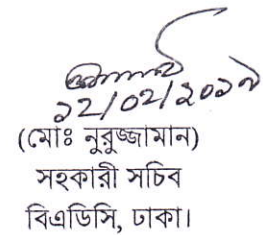 ১২/০২/২০১৭
(মোঃ নুরুজ্জামান)
সহকারী সচিব
বিএডিসি, ঢাকা।